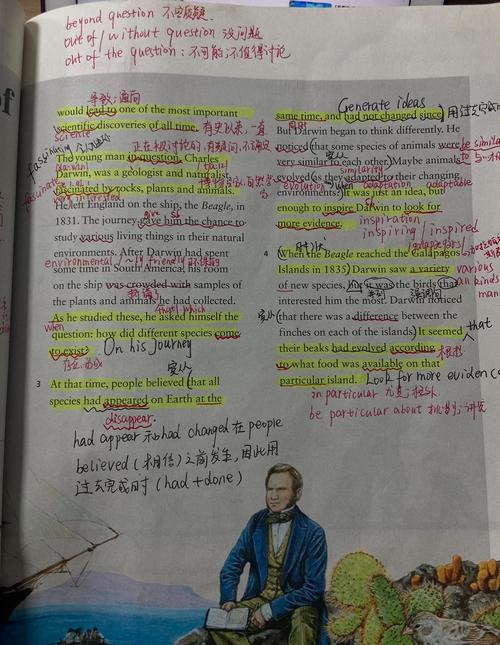 beyond question 不容质疑.
out of/without question 没问题
out of the question: 不可能;不值得讨论
导致;通向
would lead to one of the most important
scientific discoveries of all time. 有史以来,一直
science
fascinating
正在被讨论的,有疑问,不确定
The young man in question, Charles
Darwin, was a geologist and naturalist
fascinated by rocks, plants and animals.
very interested
He left England on the ship, the Beagle, in
give sb
1831. The journey gave him the chance to
study various living things in their natural
environments. After Darwin had spent
environmental /~ly friendly
some time in South America, his room
on the ship was crowded with samples of
the plants and animals he had collected.
that/which
As he studied these, he asked himself the
when
question: how did different species come
to exist?
On his journey
宾从
3 At that time, people believed that all
species had appeared on Earth at the
disappear.
had appear 和 had changed 在 people
believed (相信) 之前发生,因此用
过去完成时 (had+done)
Generate ideas
same time, and had not changed since.
But Darwin began to think differently. He
noticed that some species of animals were
be similar
宾从
very similar to each other. Maybe animals
similarity
evolved as they adapted to their changing
evolution
when
adaptation adaptable
environments? It was just an idea, but
enough to inspire Darwin to look for
sb
more evidence.
inspiration
inspiring / inspired
4 When the Beagle reached the Galapagos
Islands in 1835, Darwin saw a variety
various
of new species, but it was the birds that
all kinds
强调句
interested him the most. Darwin noticed
宾从
that there was a difference between the
finches on each of the islands. It seemed
that
their beaks had evolved according
根据
to what food was available on that
particular island.
Look for more eviden
in particular 尤其;特别
be particular about 挑剔;讲究